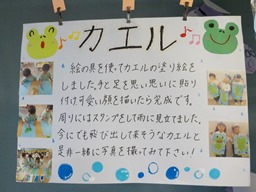 カエル
絵の具を使ってカエルの塗り絵を
しました。手と足を思い思いに貼り
付け可愛い顔を描いたら完成です。
周りにはスタンプをして雨に見立てました。
今にも飛び出して来そうなカエルと
是非一緒に写真を撮ってみて下さい!